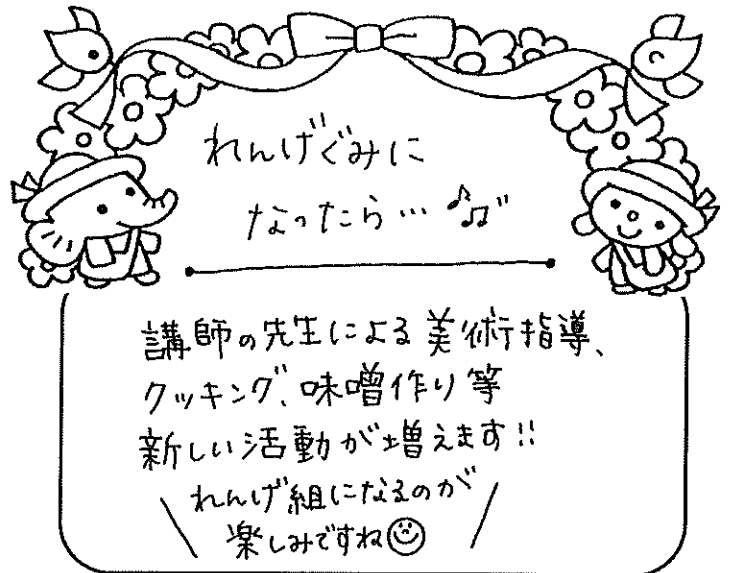 れんげぐみに
なったら…
講師の先生による美術指導、
クッキング、味噌作り等
新しい活動が増えます!!
れんげ組になるのが
楽しみですね